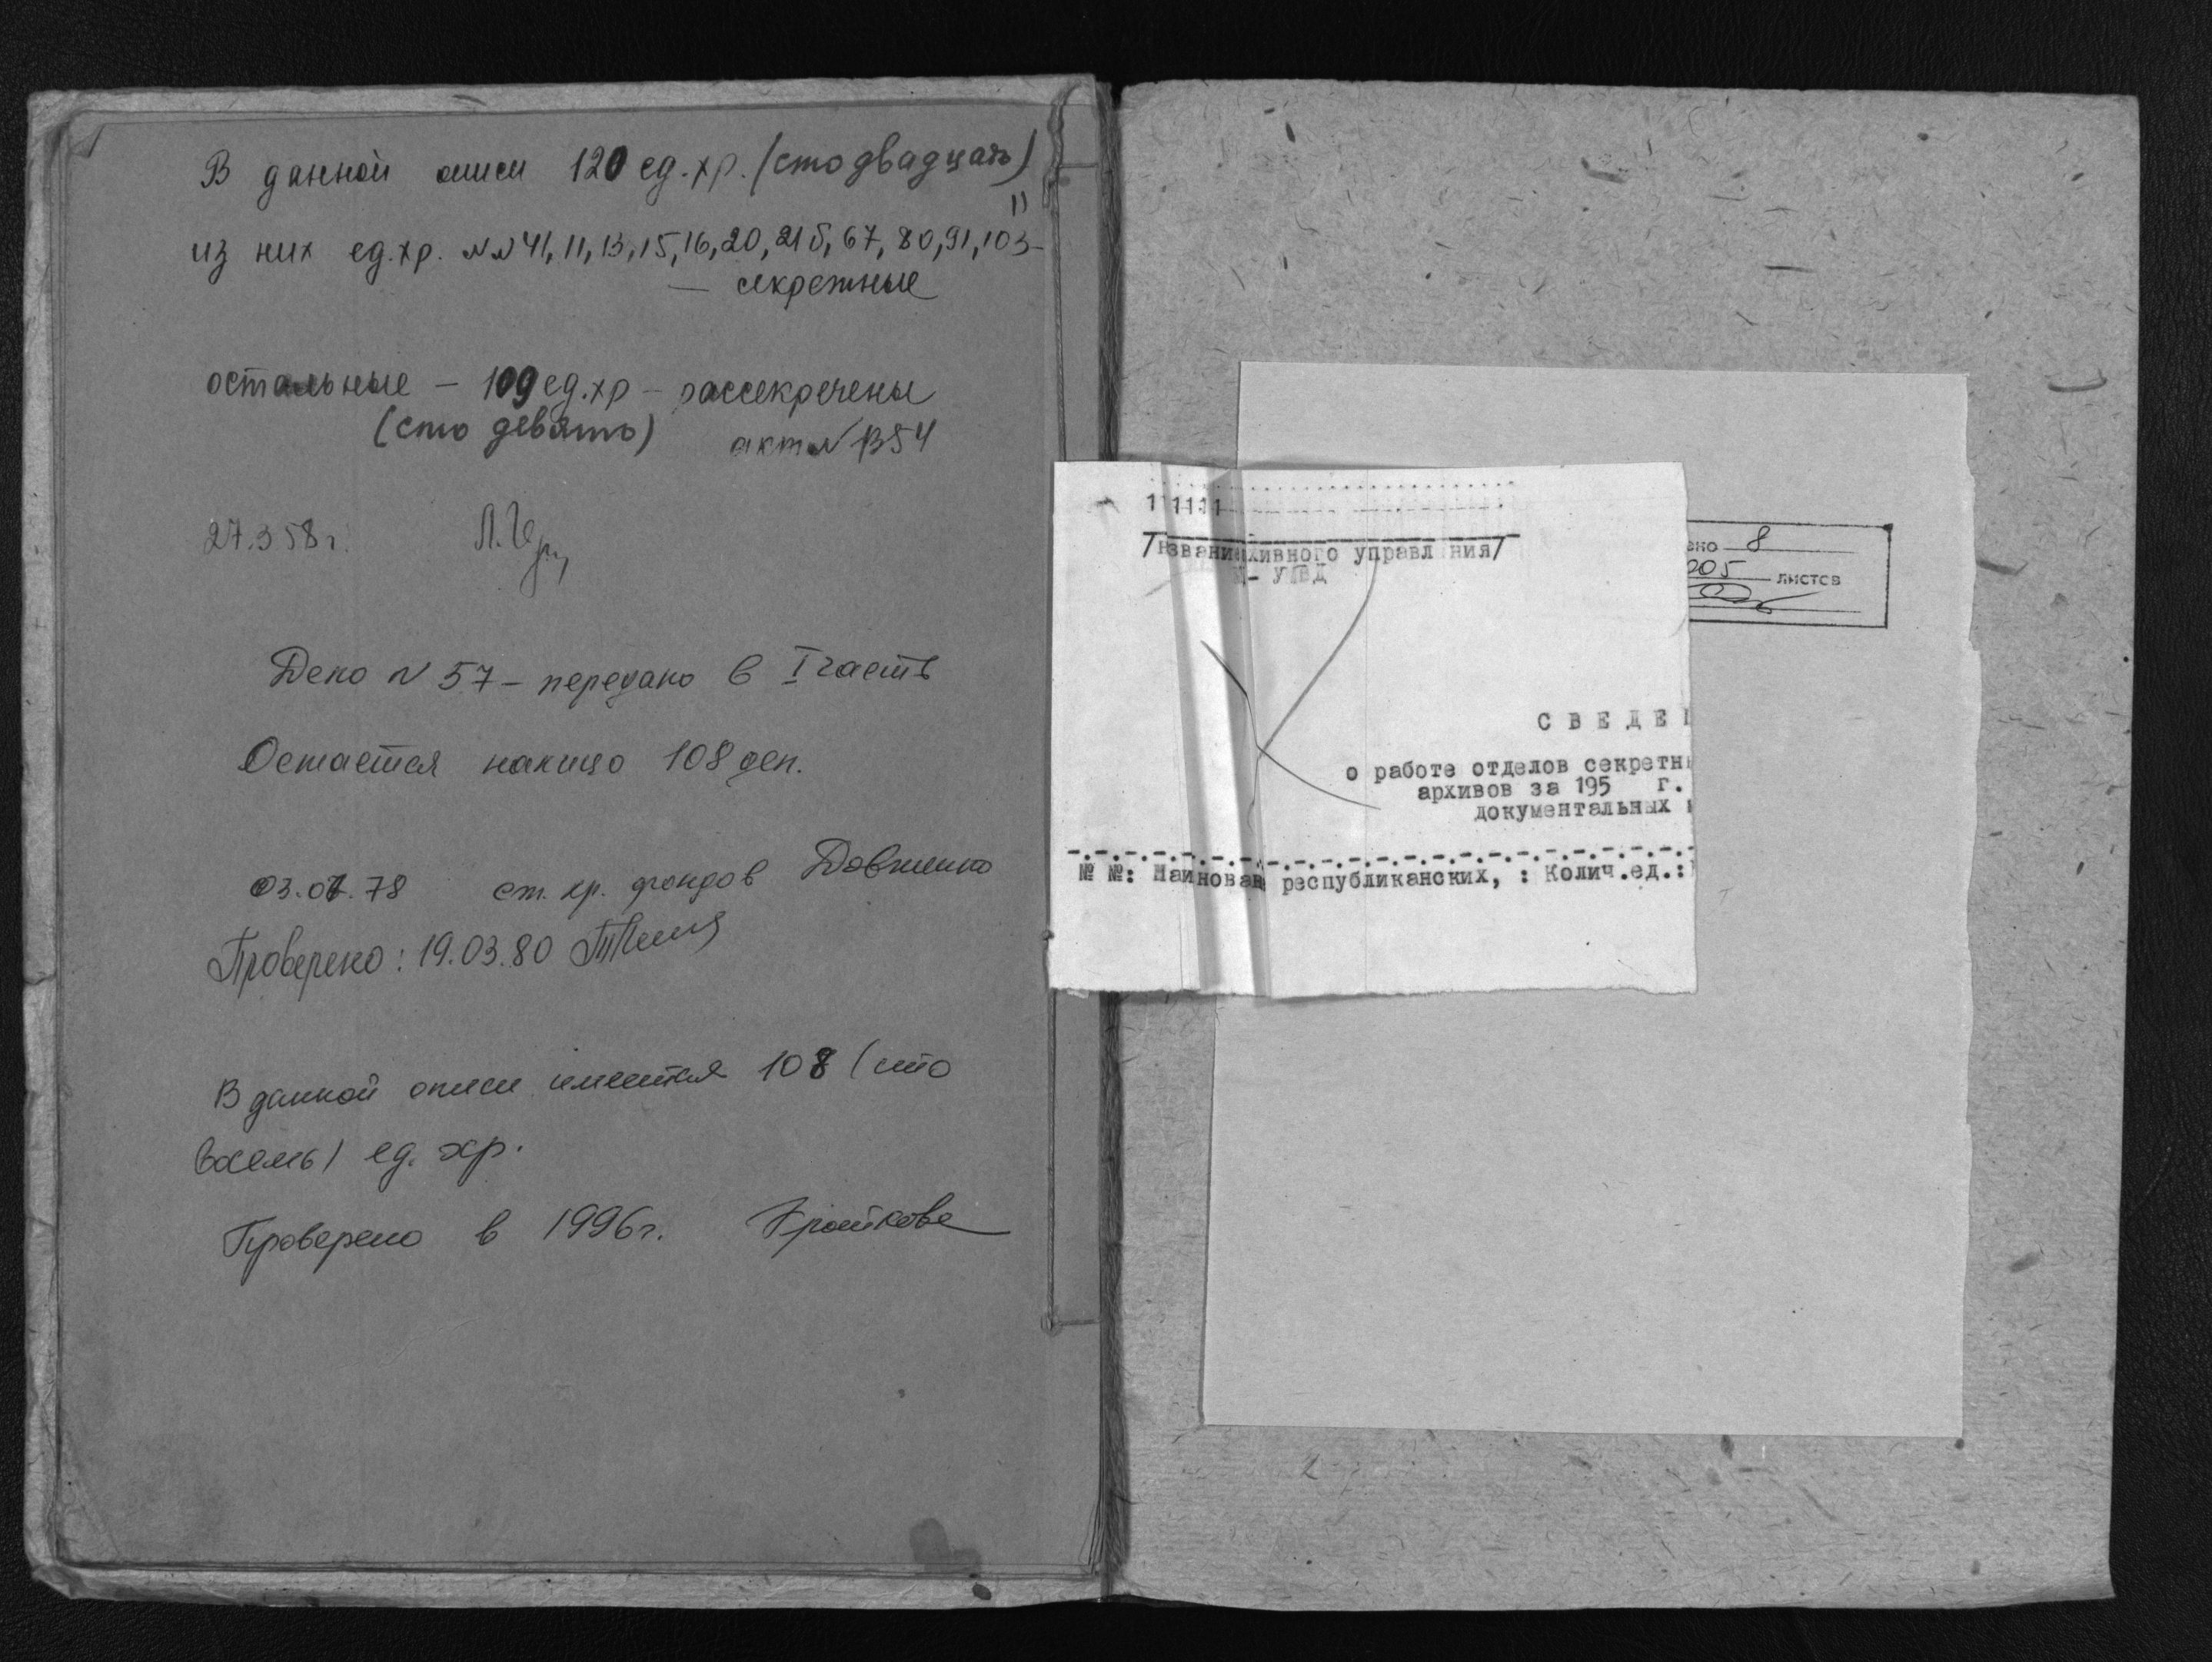 В данной описи 120 ед. хр. (сто двадцать)
11
из них ед. хр. NN 41, 11, 13, 15, 16, 20, 215, 67, 80, 91, 103 –
— секретные
остальные – 109 ед. хр – рассекречены
(сто девять) акт N
27.3 58 г.
Дело N 57 – передано в I часть
Остается налицо 108 дел.
03.07.78 ст. хр. фондов Довженко
Проверено: 19.03.80
В данной описи имеется 108 (сто
восемь) ед. хр.
Проверено в 1996 г.
/ звание хивного управл ния/
УМВД
С В Е Д Е
о работе отделов секретн
архивов за 195 г.
документальных
№ №: Наинован республиканских, : Колич.ед.:
ено 8
005 листов